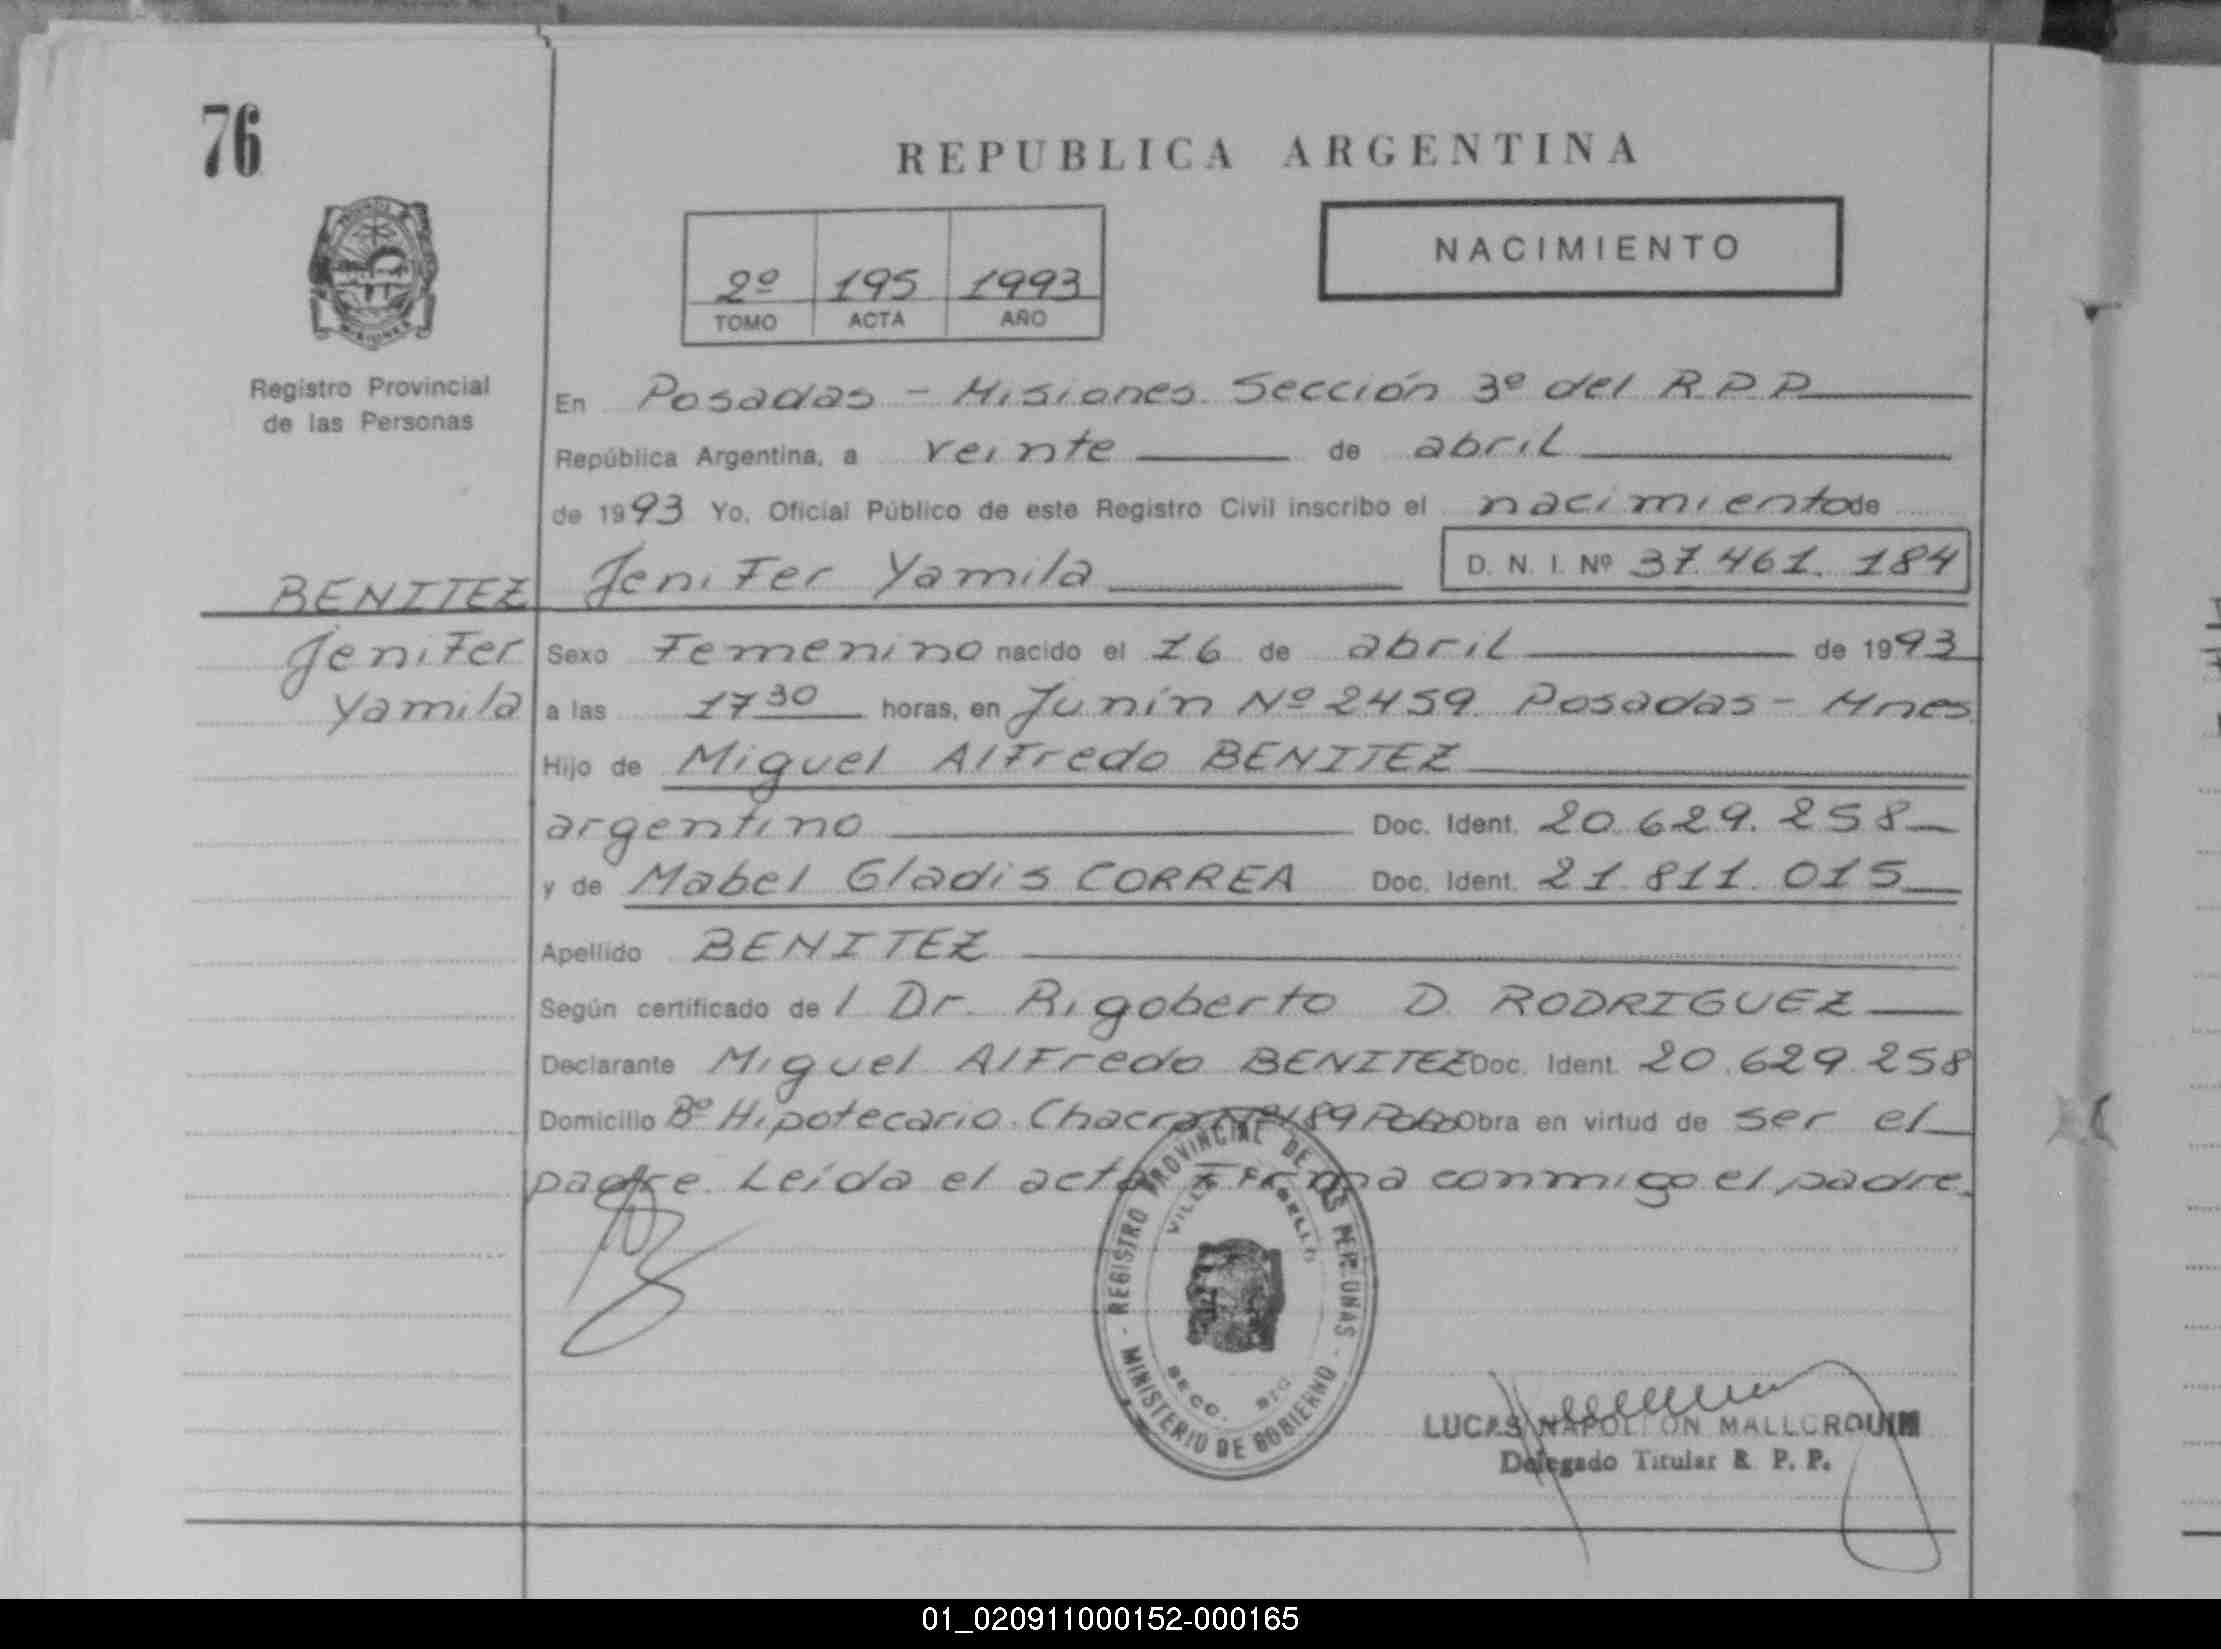 76
REPUBLICA ARGENTINA
NACIMIENTO
2º 195 1993
TOMO ACTA AÑO
Registro Provincial
de las Personas
En Posadas - Misiones. Sección 3º del R.P.P.
República Argentina, a veinte de abril
de 1993 Yo, Oficial Público de este Registro Civil inscribo el nacimiento de
BENITEZ Jenifer Yamila D. N. I. Nº 37.461.184
Jenifer Sexo Femenino nacido el 16 de abril de 1993
Yamila a las 17 30 horas, en Junín Nº 2459. Posadas - Mnes
Hijo de Miguel Alfredo BENITEZ
argentino Doc. Ident. 20.629.258
y de Mabel Gladis CORREA Doc. Ident. 21.811.015
Apellido BENITEZ
Según certificado de l Dr. Rigoberto D. RODRIGUEZ
Declarante Miguel Alfredo BENITEZ Doc. Ident. 20.629.258
Domicilio Bº Hipotecario. Chacra Nº 189 Obra en virtud de ser el
padre. Leída el acta Firma conmigo el padre.
REGISTRO PROVINCIAL DE LAS PERSONAS - MINISTERIO DE GOBIERNO -
VILLA
SECC.
LUCAS NAPOLEON MALLORQUIN
Delegado Titular R. P. P.
01_020911000152-000165